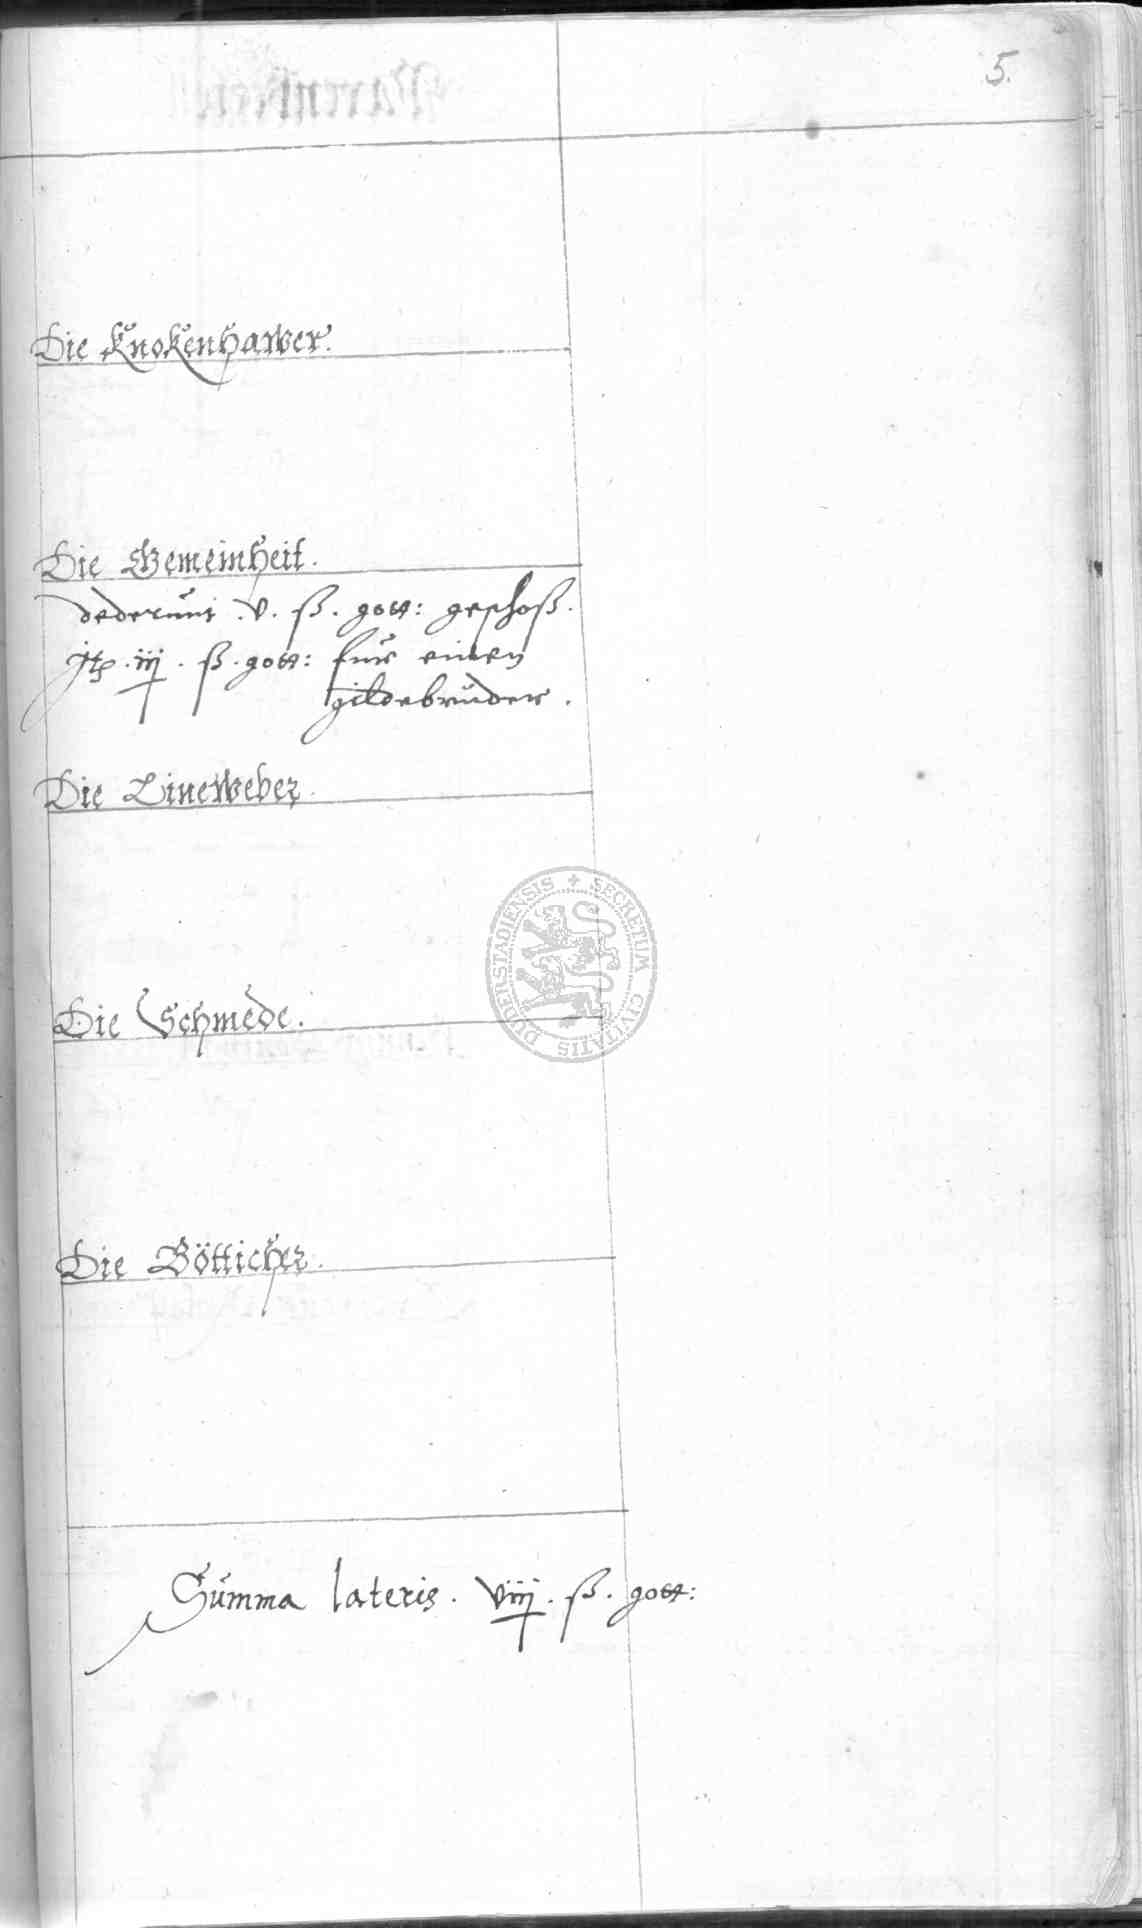 5.
Die Knokenhawer.
Die Gemeinheit.
dederunt .v. ß. gott: geschoß.
Jtē .iij. ß. gott: fur einen
gildebruder.
Die Lineweber.
DUDERSTADIENSIS + SECRETUM CIVITATIS
Die Schmede.
Die Bötticher.
Summa lateris. viij. ß. gott: